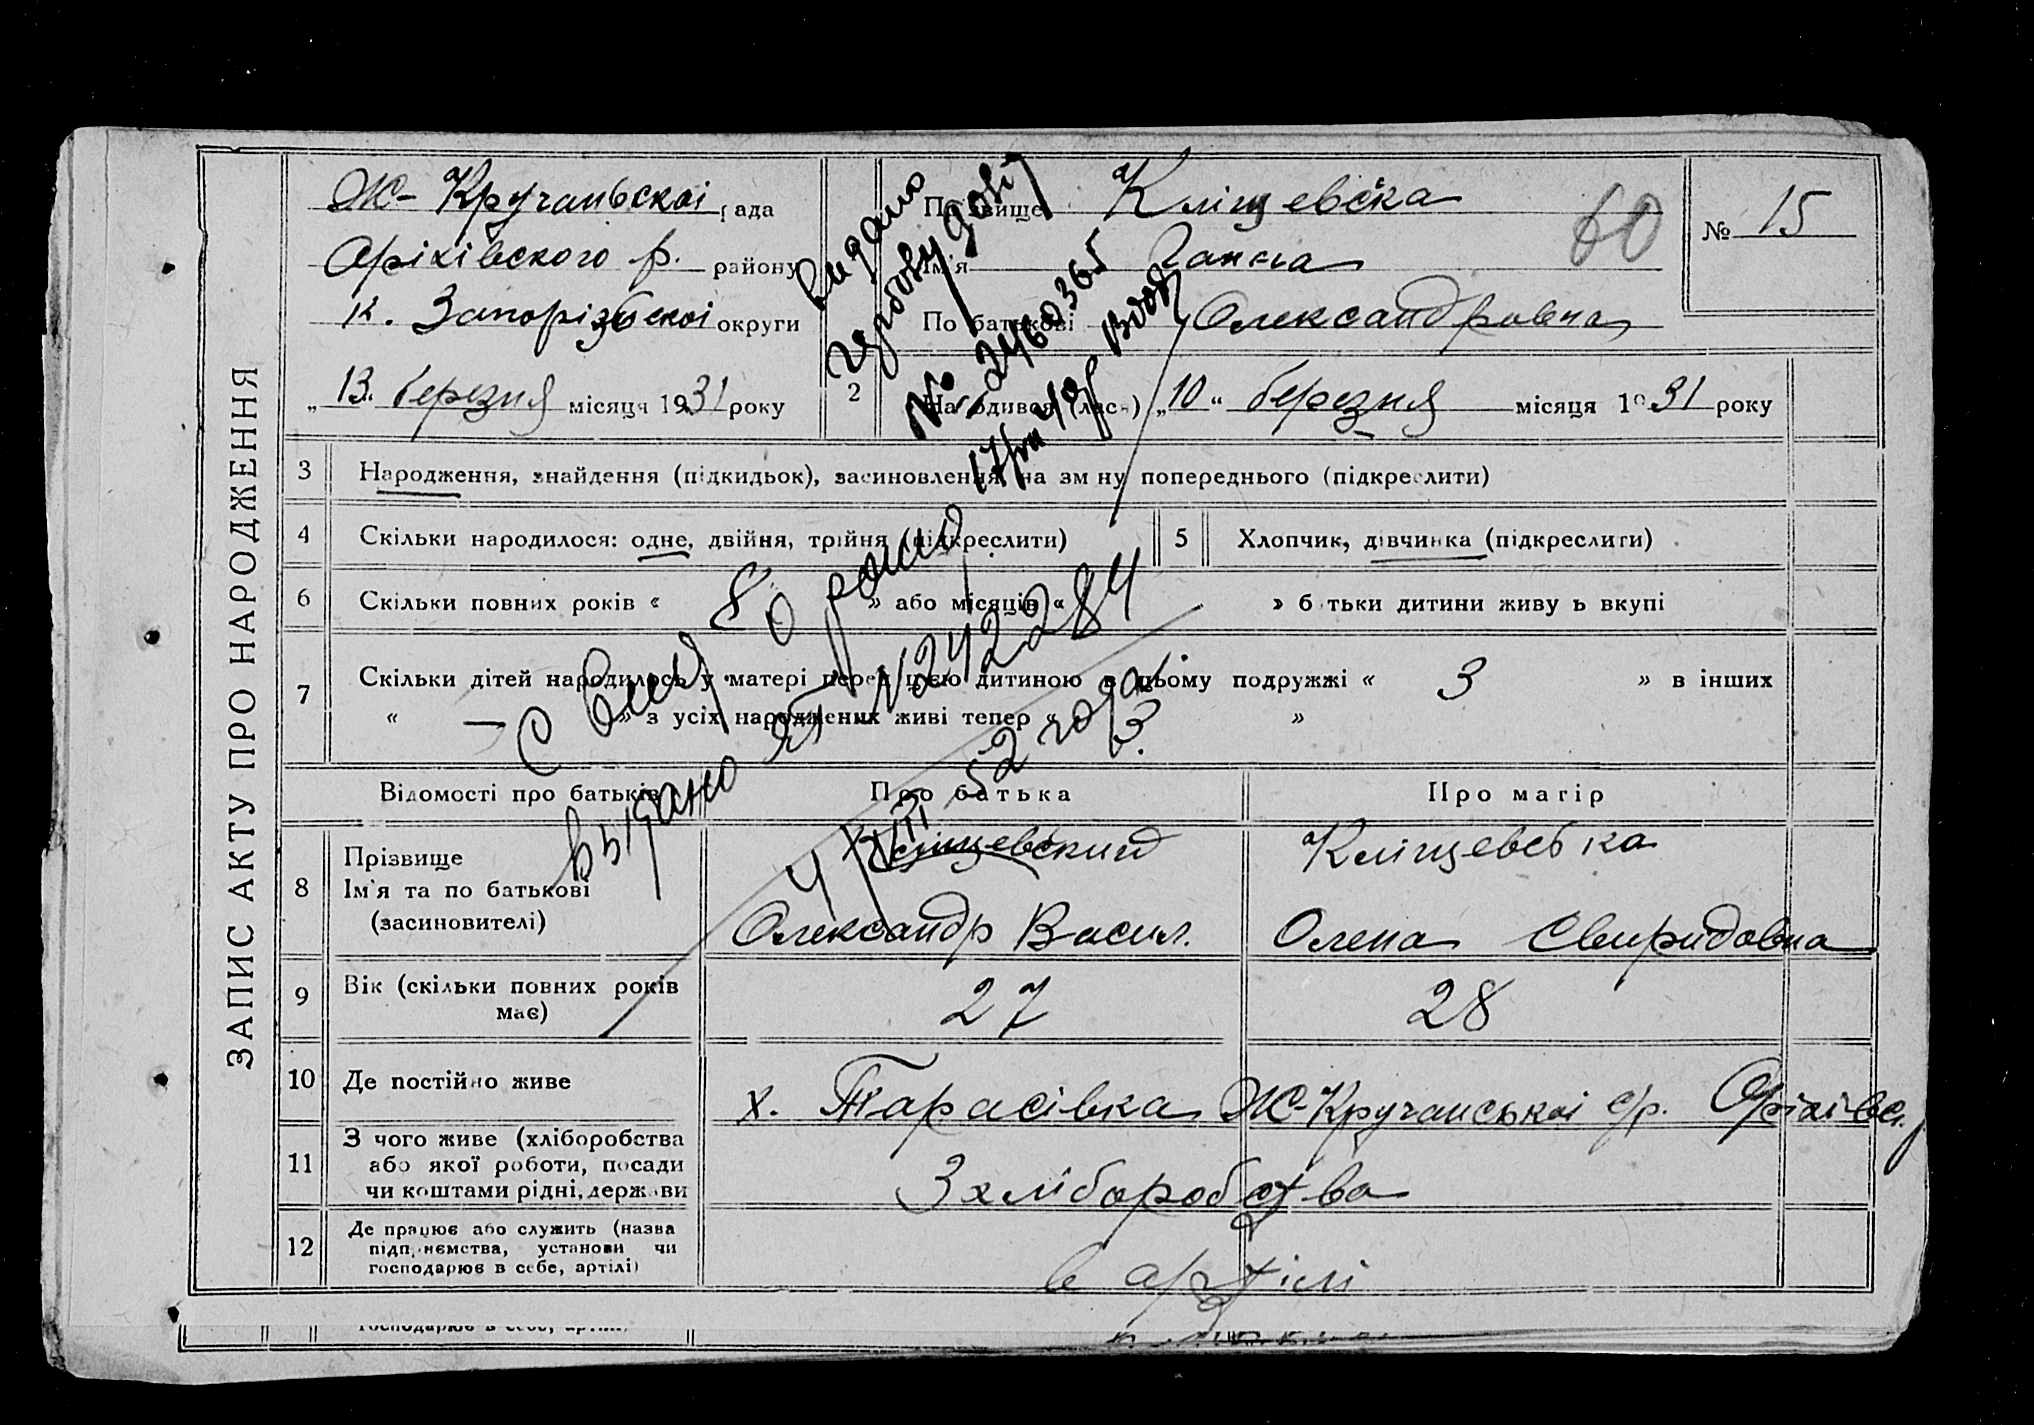 ЗАПИС АКТУ ПРО НАРОДЖЕННЯ
Ж-Кручаньскоі рада
Оріхівского р. району
к. Запорізьскоі округи
„ 13. березня місяця 1931 року
2
Прізвище Кліщевська
Ім'я Ганна
По батькові Олександровна
60
№ 15
Народився (лася) „10“ березня місяця 1931 року
3 Народження, знайдення (підкидьок), засиновлення, на зміну попереднього (підкреслити)
4 Скільки народилося: одне, двійня, трійня (підкреслити)
5 Хлопчик, дівчинка (підкреслити)
6 Скільки повних років « » або місяців « » батьки дитини живуть вкупі
7 Скільки дітей народилось у матері перед цією дитиною в цьому подружжі « 3 » в інших
« — » з усіх народжених живі тепер « 3. »
видано
№ 2460365
выдано № 242284
4/VIII 52 года
Відомості про батьків
Про батька
Про матір
8 Прізвище
Ім'я та по батькові
(засиновителі)
Кліщевский
Олександр Васил.
Кліщевська
Олена Свиридовна
9 Вік (скільки повних років має)
27
28
10 Де постійно живе
х. Тарасівка Ж-Кручанськоі с/р. Оріхівс. р
11 З чого живе (хліборобства
або якої роботи, посади
чи коштами рідні, держави
З хліборобства
12 Де працює або служить (назва
підприємства, установи чи
господарює в себе, артілі)
в артілі
господарює в себе, артілі)